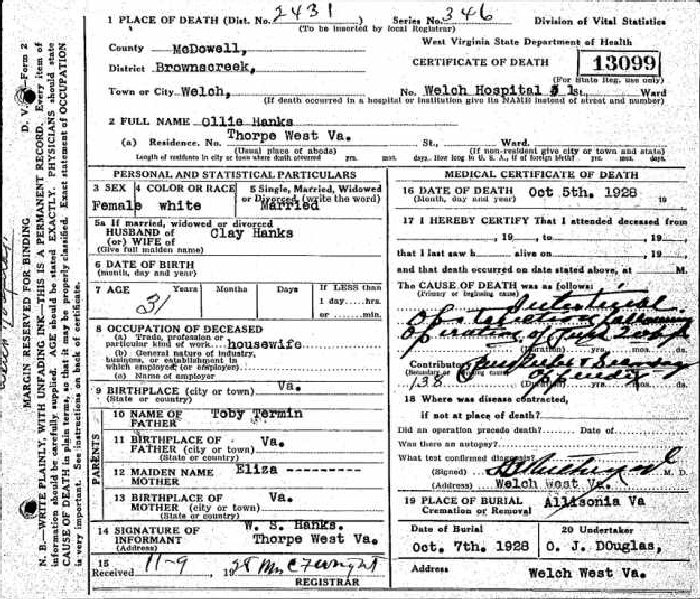 1 PLACE OF DEATH (Dist. No. 2431 Series No. 346 Division of Vital Statistics
(To be inserted by local Registrar)
County McDowell, West Virginia State Department of Health
District Brownscreek, CERTIFICATE OF DEATH 13099
(For State Reg. use only)
Town or City Welch, No. Welch Hospital # 1 St., Ward
(If death occurred in a hospital or institution give its NAME instead of street and number)
2 FULL NAME Ollie Hanks
(a) Residence. No. Thorpe West Va. St., Ward.
(Usual place of abode) (If non-resident give city or town and state)
Length of residence in city or town where death occurred yrs. mos. days. How long in U. S. A., if of foreign birth? yrs. mos. days.
PERSONAL AND STATISTICAL PARTICULARS
3 SEX 4 COLOR OR RACE 5 Single, Married, Widowed
or Divorced (write the word)
Female white Married
5a If married, widowed or divorced
HUSBAND of Clay Hanks
(or) WIFE of
(Give full maiden name)
6 DATE OF BIRTH
(month, day and year)
7 AGE Years Months Days If LESS than
31 1 day.....hrs.
or.....min.
8 OCCUPATION OF DECEASED
(a) Trade, profession or
particular kind of work housewife
(b) General nature of industry,
business, or establishment in
which employed (or employer)
(c) Name of employer
9 BIRTHPLACE (city or town) Va.
(State or country)
PARENTS
10 NAME OF FATHER Toby Termin
11 BIRTHPLACE OF FATHER (city or town) Va.
(State or country)
12 MAIDEN NAME MOTHER Eliza ----------
13 BIRTHPLACE OF MOTHER (city or town) Va.
(State or country)
14 SIGNATURE OF INFORMANT W. S. Hanks.
(Address) Thorpe West Va.
15
Received 11-9 1928 Mrs
REGISTRAR
MEDICAL CERTIFICATE OF DEATH
16 DATE OF DEATH Oct 5th. 1928
(Month, day and year) 19
17 I HEREBY CERTIFY That I attended deceased from
, 19 , to , 19
that I last saw h alive on , 19
and that death occurred on date stated above, at M.
The CAUSE OF DEATH was as follows:
(Primary or beginning cause)
Intestinal
Obstruction following
Operation
(Duration) yrs. mos. ds.
Contributory
(Secondary or cause)
138 (Duration) yrs. mos. ds.
18 Where was disease contracted,
if not at place of death?
Did an operation precede death? Date of
Was there an autopsy?
What test confirmed diagnosis?
(Signed) M. D.
(Address) Welch West Va.
19 PLACE OF BURIAL Allisonia Va
Cremation or Removal
Date of Burial 20 Undertaker
Oct. 7th. 1928 O. J. DOuglas,
Address Welch West Va.
D. V. S.—Form 2
MARGIN RESERVED FOR BINDING
N. B.—WRITE PLAINLY, WITH UNFADING INK—THIS IS A PERMANENT RECORD. Every item of
information should be carefully supplied. AGE should be stated EXACTLY. PHYSICIANS should state
CAUSE OF DEATH in plain terms, so that it may be properly classified. Exact statement of OCCUPATION
is very important. See instructions on back of certificate.